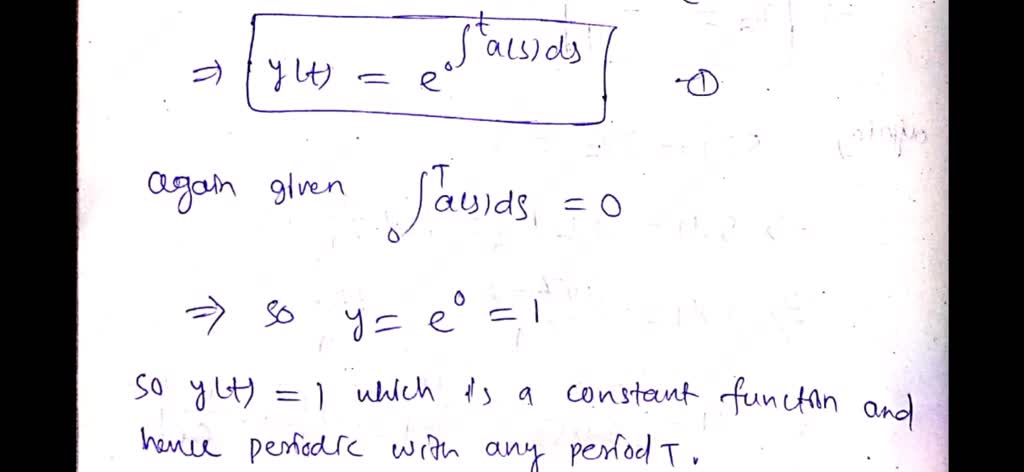 ⇒ y(t) = e^{∫_0^t a(s)ds} -①
again given ∫_0^T a(s)ds = 0
⇒ so y = e^0 = 1
so y(t) = 1 which is a constant function and
hence periodic with any period T.